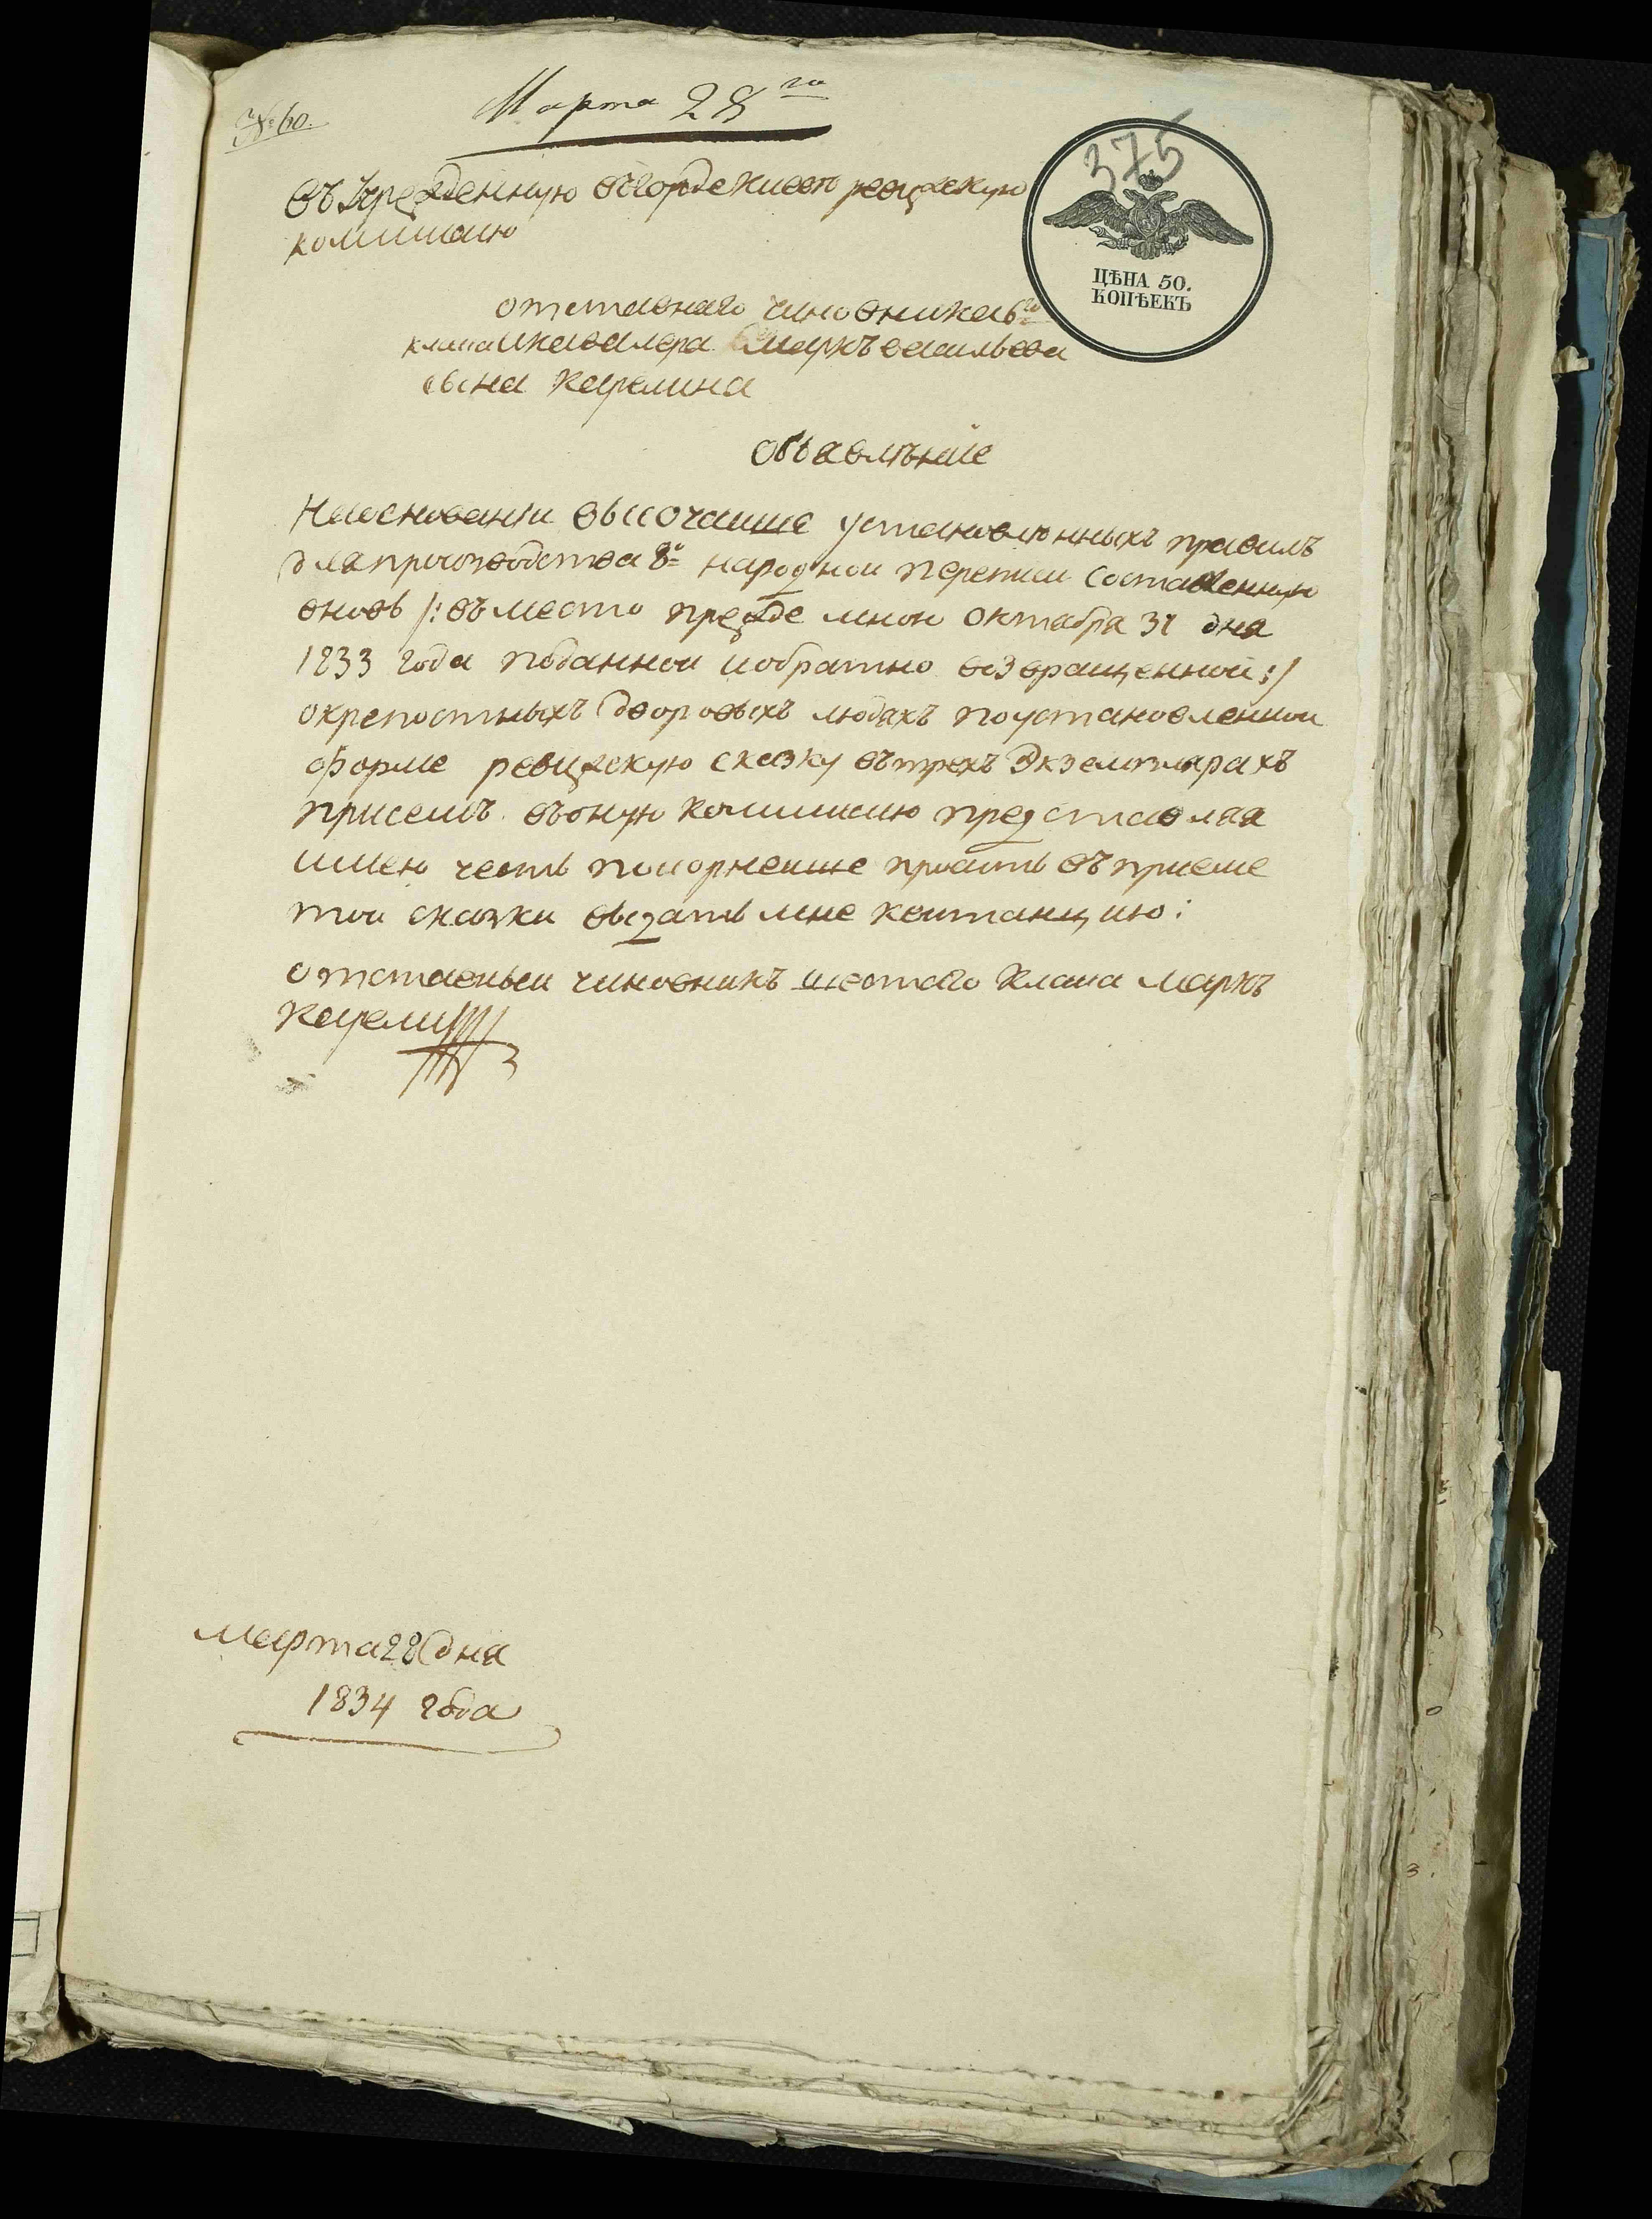 № 60.
Марта 28го
375
ЦѢНА 50.
КОПѢЕКЪ
въ Учрежденную въ городе Киеве ревижскую
комимисию
отставнаго чиновника 6го
класа и кавалера Маркъ васильева
сына Карелина
объявлѣние
На основании высочаише установлѣнныхъ правилъ
для производства 8й народнои переписи составленную
вновь /: въместо прежде мною октабра 31 дня
1833 года поданнои и обратно возвращеннои :/
о крепостныхъ дворовыхъ людяхъ по установленнои
форме ревижскую сказку въ трехъ Экземплярахъ
при семъ въ оную комимисию представляя
имею честь покорнеише просить въ приеме
тои сказки выдать мне квитанцию:
отставныи чиновникъ шестаго класа Маркъ
Карелин
марта 28 дня
1834 года